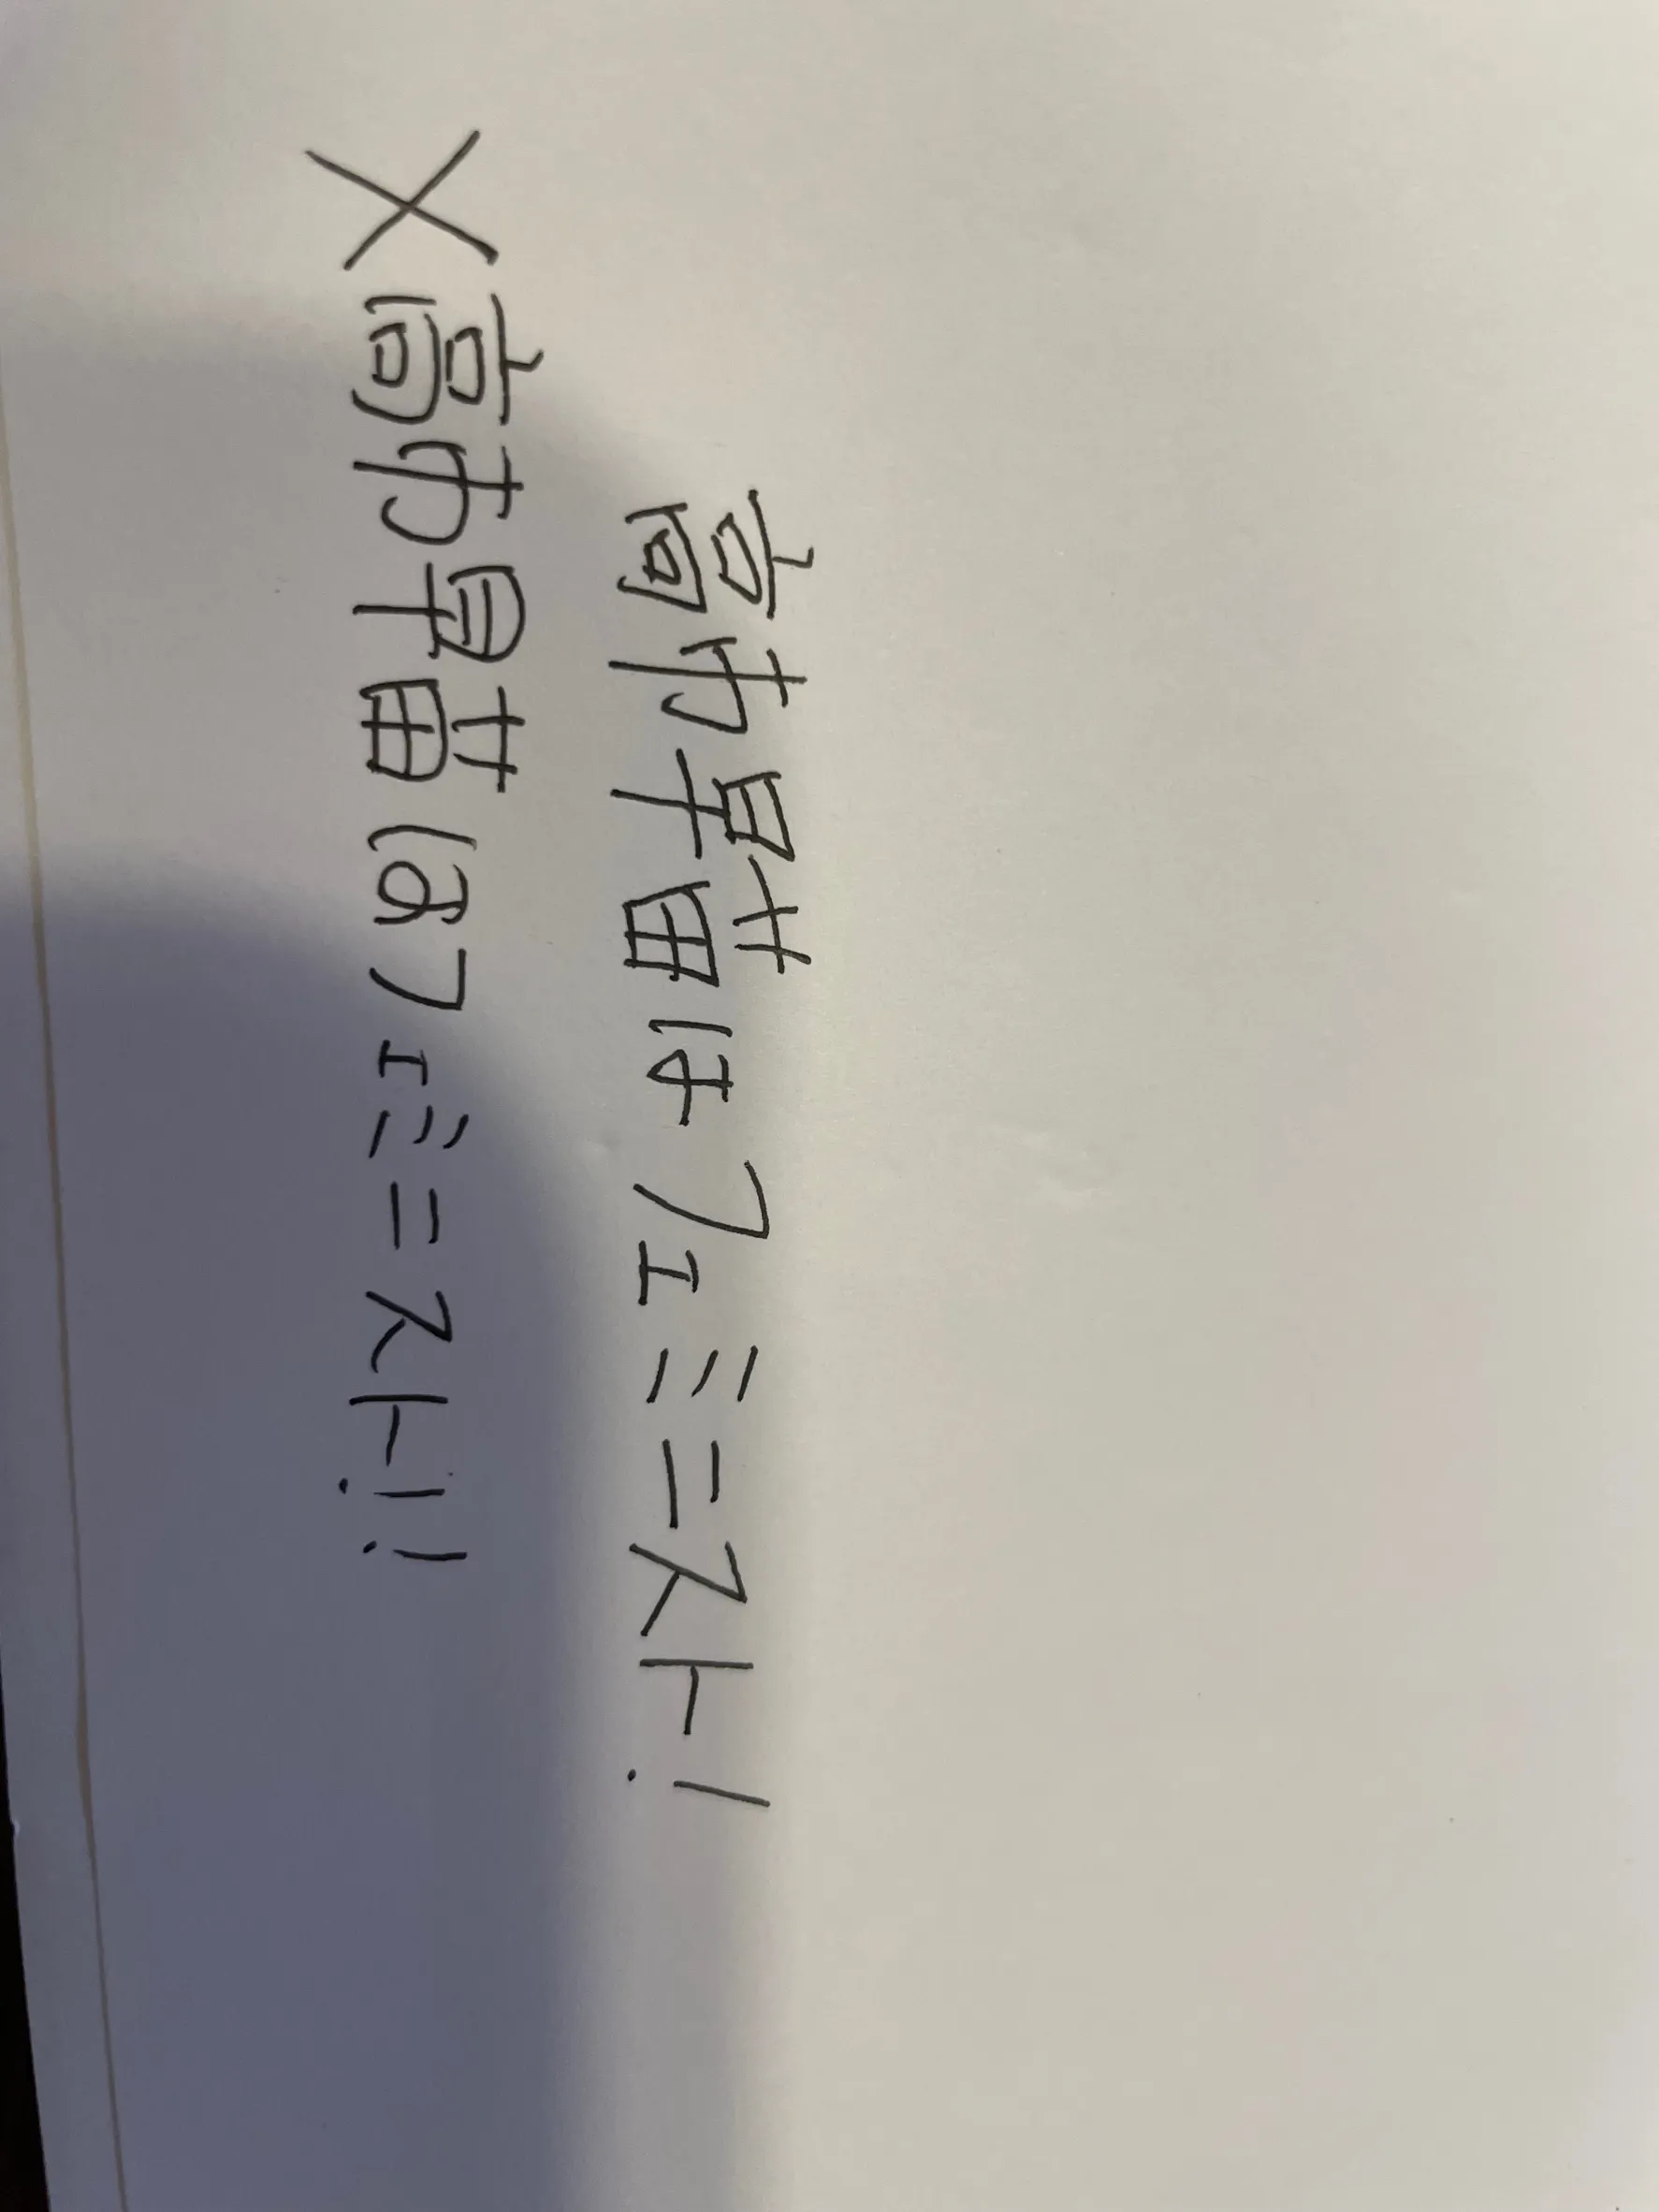 高市早苗はフェミニスト!
×高市早苗はフェミニスト!!